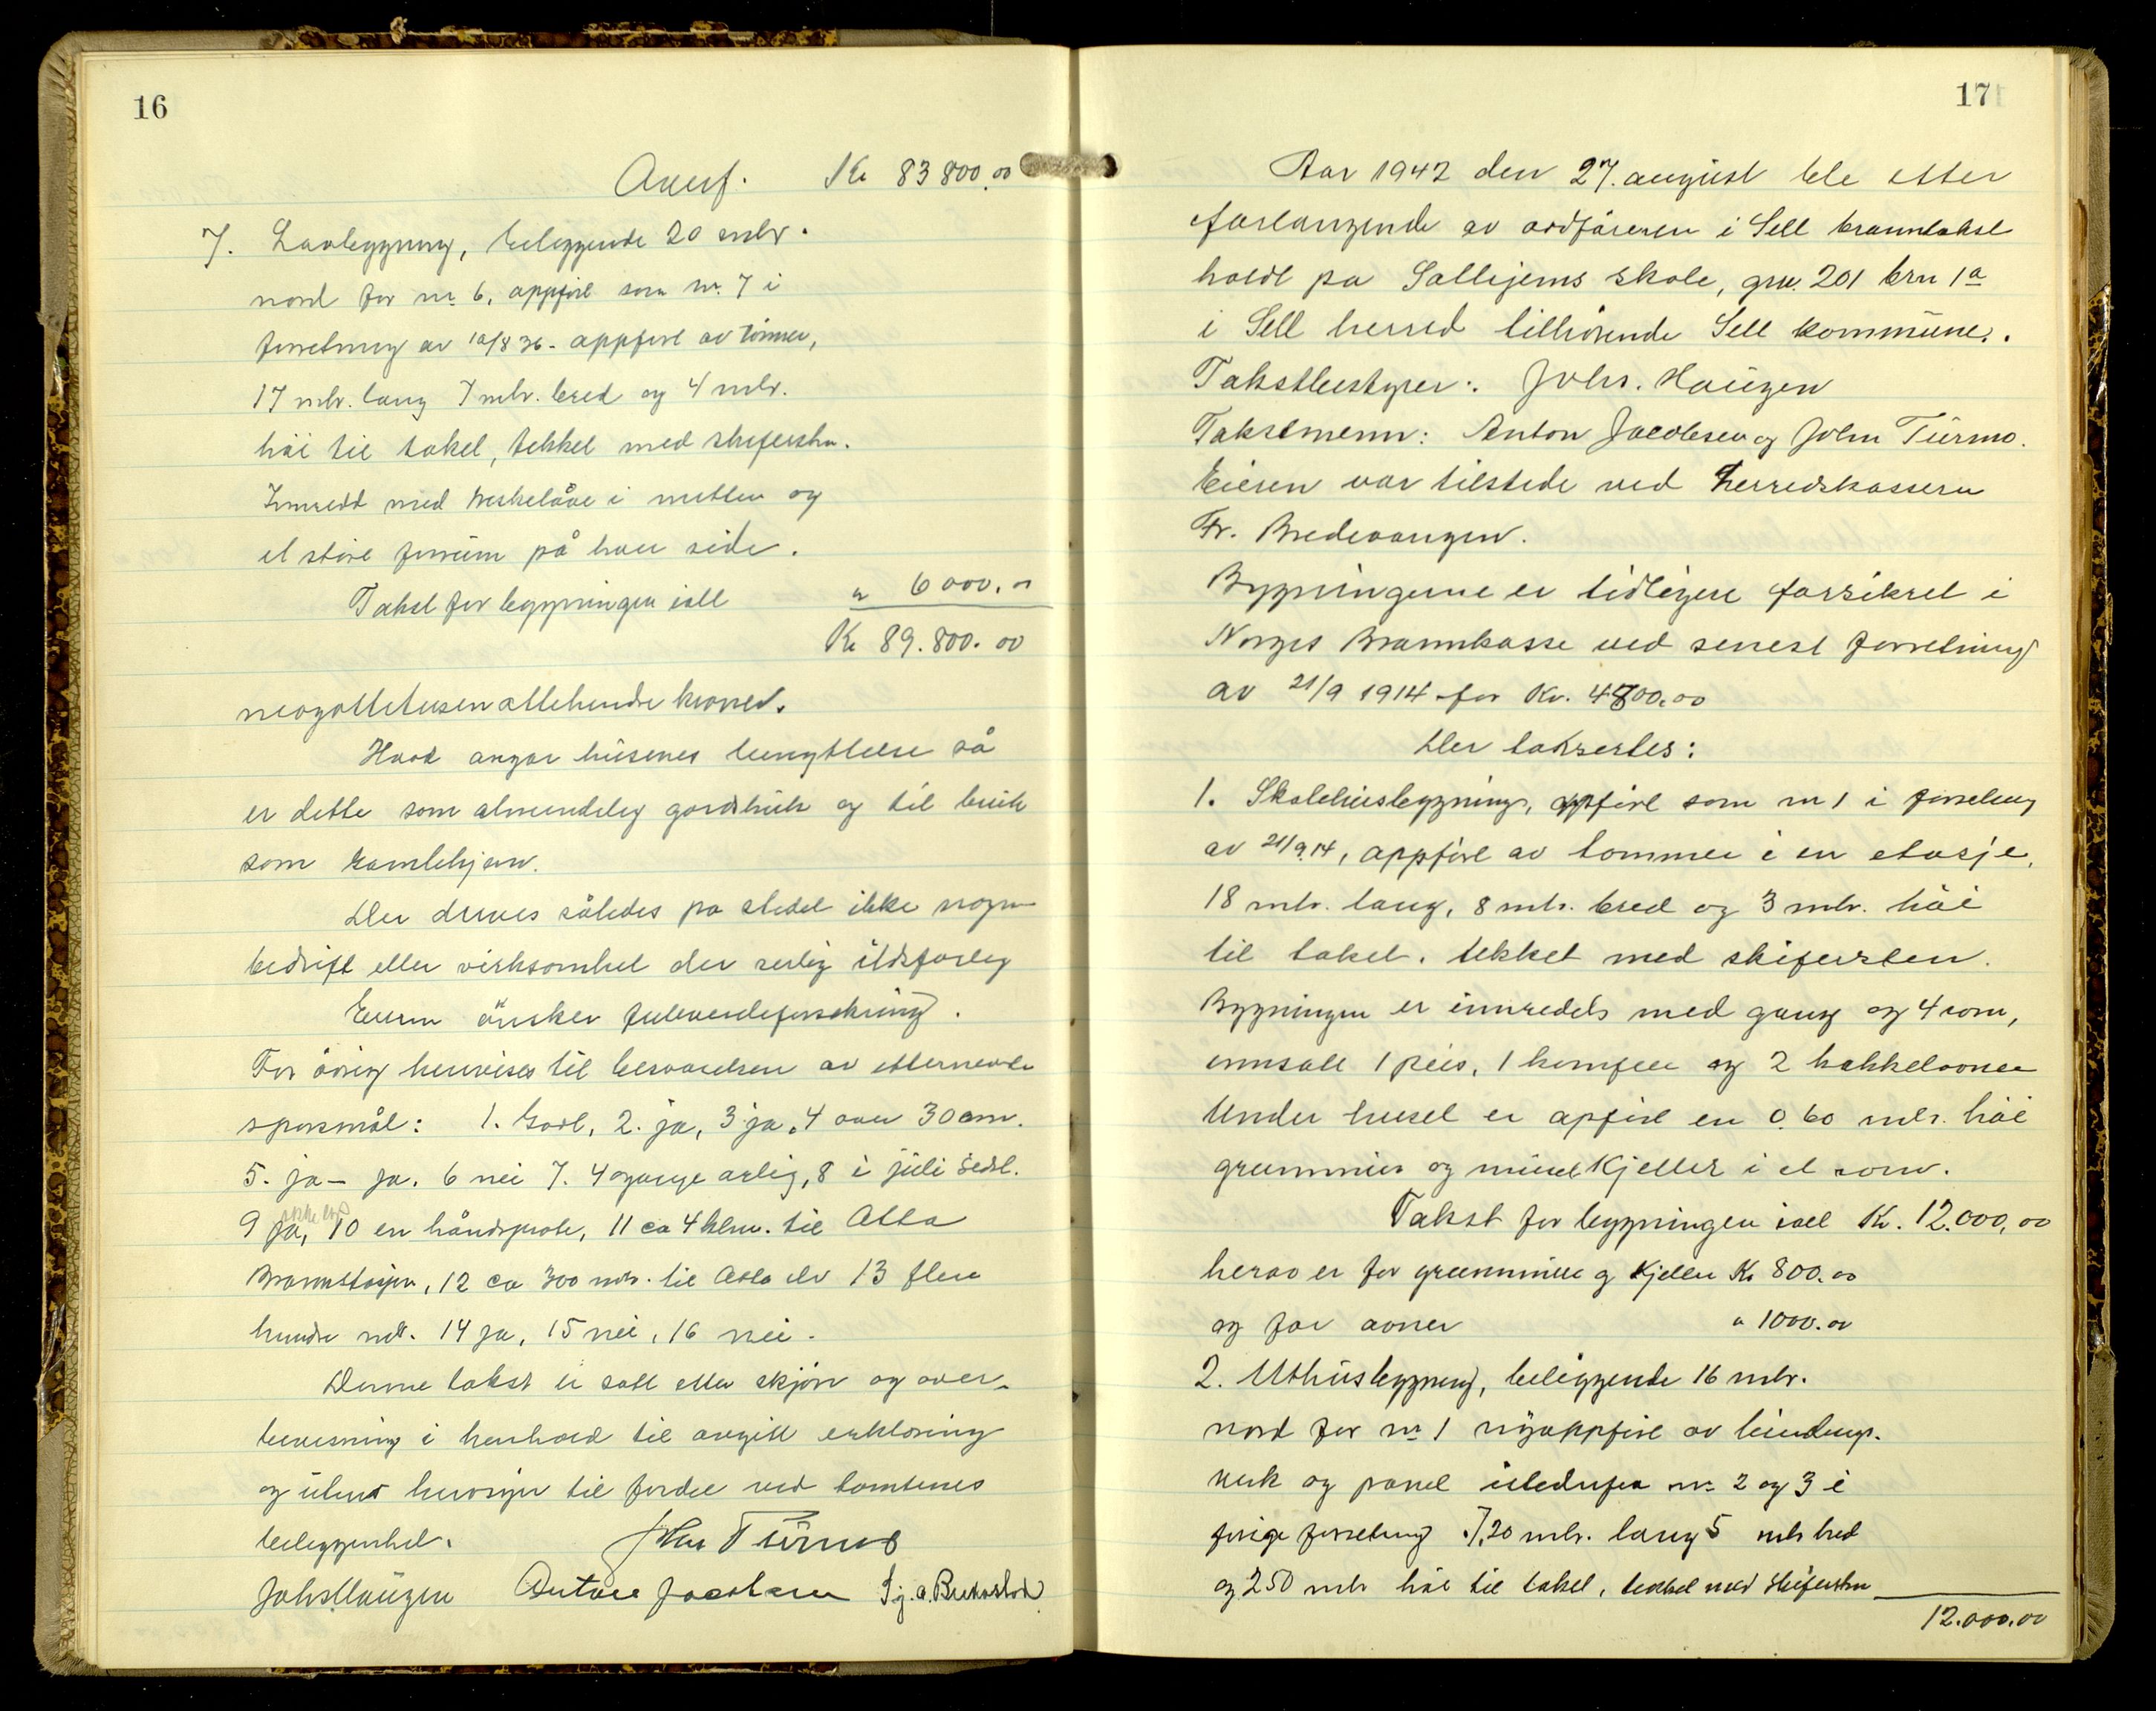 16
Overf. Kr 83 800.00
7. Laavbygning, beliggende 20 mtr.
nord for nr 6, oppført som nr. 7 i
forretning av 10/8 36 - oppført av tømmer,
17 mtr. lang 7 mtr. bred og 4 mtr.
höi til taket, tekket med skifersten.
Innredd med treskelåve i midten og
et större forrum på hver side.
Takst for bygningen ialt " 6 000.00
Kr 89.800.00
niogottitusenattehundre kroner.
Hvad angår hüsenes benyttelse så
er dette som almindelig gårdsbrük og til brük
som gamlehjem.
Der drives således på stedet ikke nogen
bedrift eller virksomhet der serlig ildsfarlig
Eieren önsker fulverdiforsikring.
For övrig henvises til besvarelsen av etternevnte
spörsmål: 1. Godt, 2. ja, 3 ja, 4 over 30 cm.
5. ja - ja. 6 nei 7. 4 gange årlig, 8 i jüli sidst.
9 ja, 10 en håndspröte, 11 ca 4 klm. til Otta
Brannstasjon, 12 ca 300 mtr. til Otta elv 13 flere
hundre mtr. 14 ja, 15 nei, 16 nei.
Denne takst er satt etter skjön og over-
bevisning i henhold til avgitt erklæring
og üten hensyn til fordel ved tomtenes
beliggenhet. John Türmo
Johs Haügen Anton Jacobsen
17
Aar 1942 den 27. august ble etter
forlangende av ordföreren i Sell branntakst
holdt på Solhjems skole, grn. 201 brn 1a
i Sell herred tilhörende Sell kommüne.
Takstbestyrer: Johs. Haügen
Takstmenn: Anton Jacobsen og John Türmo.
Eieren var tilstede ved Herredskasserer
Fr. Bredevangen.
Bygningene er tidligere forsikret i
Norges Brannkasse ved senest forretning
av 21/9 1914 for Kr. 4800.00
Der taksertes:
1. Skolehüsbygning, oppfört som nr 1 i forretning
av 21/9.14, oppfört av tömmer i en etasje,
18 mtr. lang, 8 mtr. bred og 3 mtr. höi
til taket, tekket med skifersten.
Bygningen er innredets med gang og 4 rom,
innsatt 1 peis, 1 komfur og 2 kakkelovner
Under huset er opfört en 0.60 mtr. höi
grunnmür og müret Kjeller i et rom.
Takst for bygningen ialt Kr. 12.000,00
herav er for grunnmür og Kjeller Kr 800.00
og for ovner " 1000.00
2. Uthüsbygning, beliggende 16 mtr.
nord for nr 1 nyoppfört av bindings-
verk og panel istedenfor nr. 2 og 3 i
forrige forretning. 7,20 mtr. lang 5 mtr bred
og 2 50 mtr höi til taket, tekket med skifersten
12.000.00